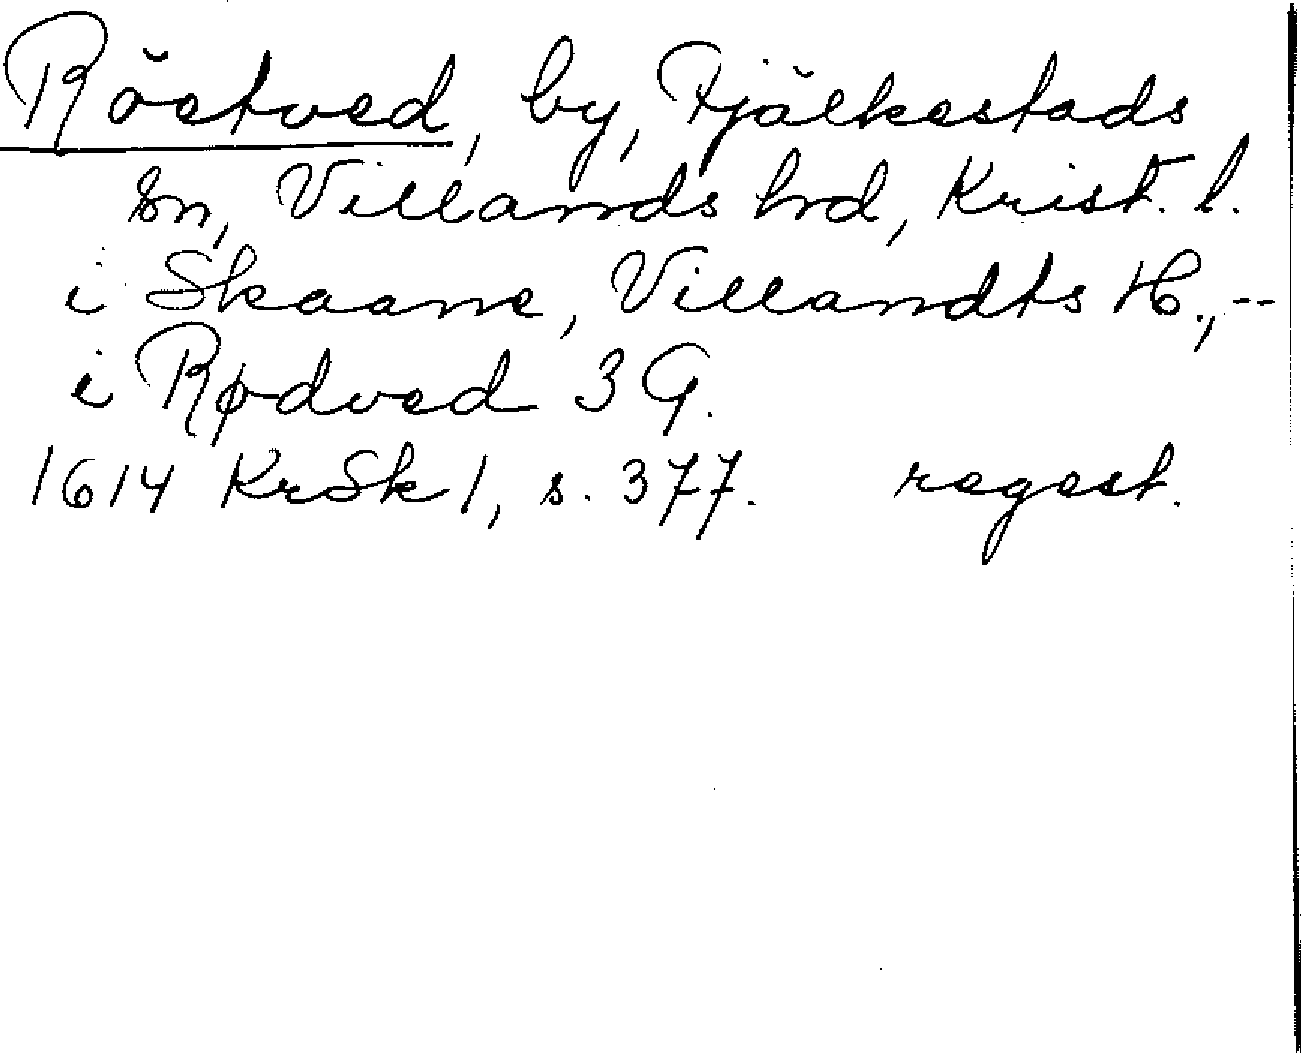 Röetved, by, Fjälkestads
sn, Villands hrd, Krist. l.
i Skaane, Villandts H., --
i Rødved 3 G.
1614 KrSk 1, s. 377. regest.